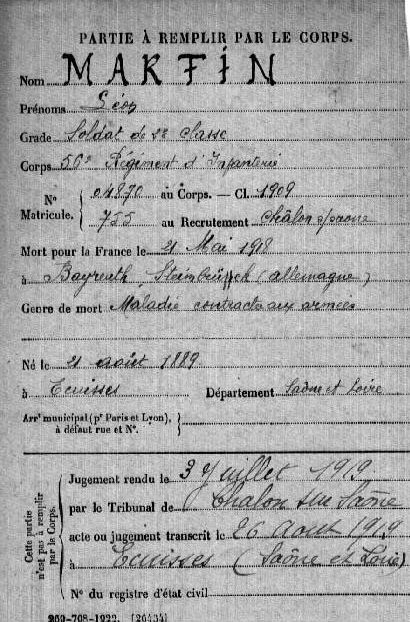 PARTIE À REMPLIR PAR LE CORPS.
Nom MARTIN
Prénoms Léon
Grade Soldat de 2e classe
Corps 56e Régiment d'Infanterie
N° Matricule. { 04870 au Corps. — Cl. 1909
755 au Recrutement Châlon s/Saone
Mort pour la France le 21 Mai 1918
à Bayreuth, (allemagne)
Genre de mort Maladie contractée aux armées
Né le 21 août 1889
à Ecuisses Département Saône et Loire
Arrt municipal (pr Paris et Lyon), à défaut rue et N°. }
Cette partie n'est pas à remplir par le Corps.
Jugement rendu le 3 Juillet 1919
par le Tribunal de Chalon sur Saône
acte ou jugement transcrit le 26 août 1919
à Ecuisses (Saône et Loire)
N° du registre d'état civil
269-708-1922. [26434]